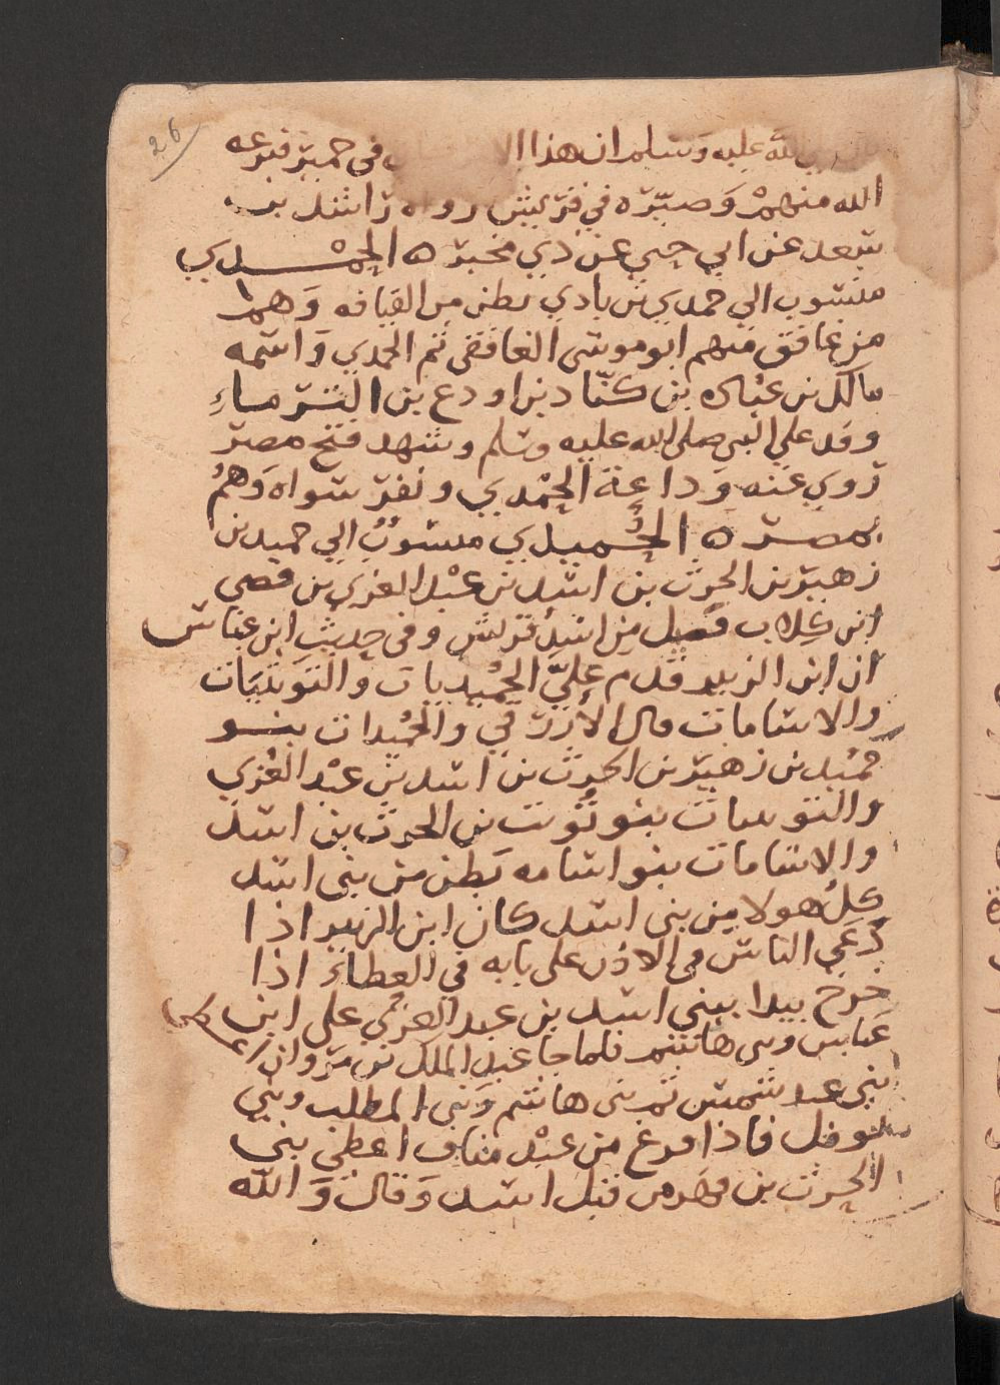 26
الله عليه وسلم ان هذا الا في حمير فنزعه
الله منهم وصيره في قريش رواه راشد بن
سعد عن ابي حي عن ذي مخبر ه الحمدي
منسوب الي حمدي بن بادي بطن من القيافه وهم
من غافق منهم ابو موسى الغافقي ثم الحمدي واسمه
مالك بن عباده بن كنّاد بن اودع بن التبرماء
وفد علي النبي صلى الله عليه وسلم وشهد فتح مصر
روي عنه وداعة الحمدي ونفر سواه وهم
بمصر ه الحُميدي منسوبٌ الي حميد بن
زهير بن الحرث بن اسد بن عبد العزي بن قصي
ابن كلاب فصيل من اسد قريش وفي حديث ابن عباس
ان ابن الزبير قدم عليّ الحُميديات والتويتيات
والاسامات قال الازرقي والحُميدات بنو
حميد بن زهير بن الحرث بن اسد بن عبد العُزي
والتويتات بنو تُويت بن الحرث بن اسد
والاسامات بنو اسامه بطن من بني اسد
كل هولا من بني اسد كان ابن الزبير اذا
دُعي الناس في الاذن على بابه في العطاء اذا
خرج بيدا ببني اسد بن عبد العزى على ابن
عباس وبني هاشم فلما جا عبد الملك بن مروان
بني عبد شمس ثم بني هاشم وبني المطلب وبني
نوفل فاذا فرغ من عبْد مناف اعطي بني
الحرث بن فهر من قبل اسد وقال والله